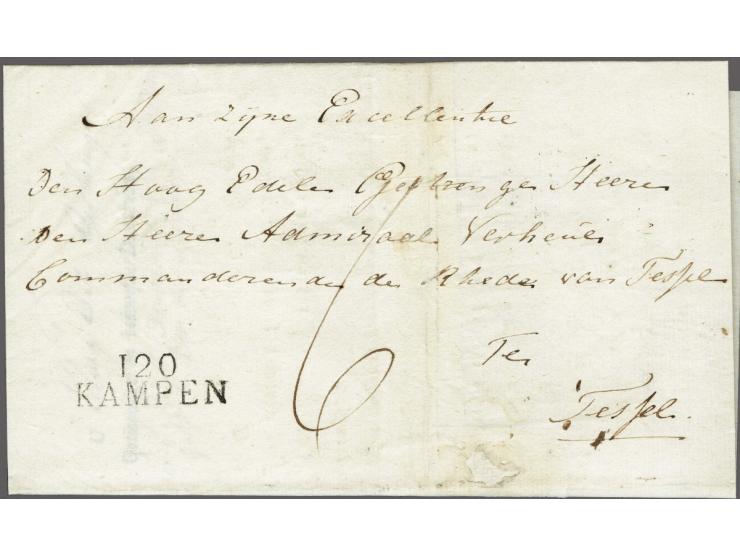 Aan zÿne Excellentie
Den Hoog Edele Gestrenge Heere
Den Heere Admiraal Verheúe
Commanderende de Rhede van Tessel
6
Ter
Tessel.
120
KAMPEN